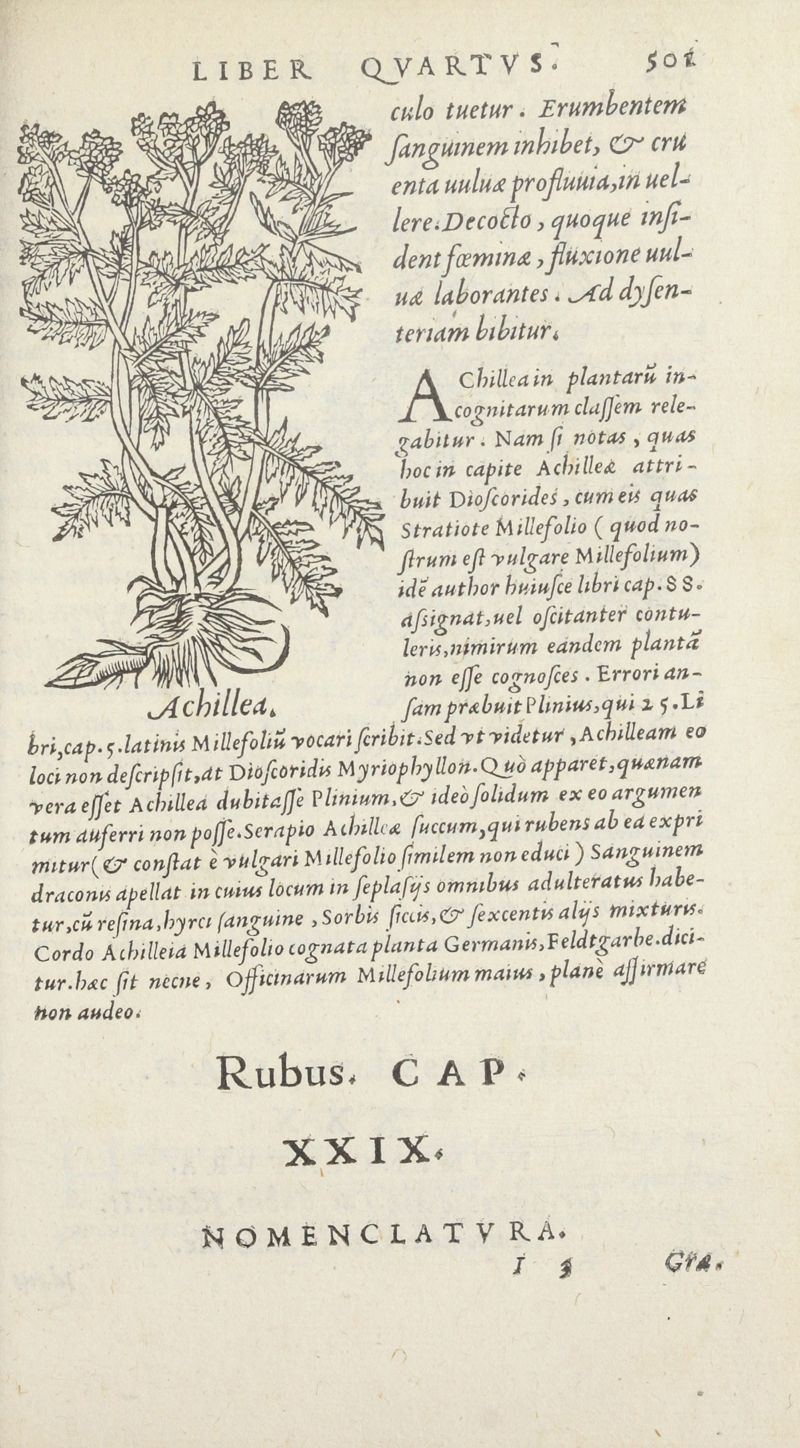 LIBER QVARTVS. 501
culo tuetur. Erumbentem
ſanguinem inhibet, & cru
enta uuluæ profluuia, in uel-
lere. Decocto, quoque inſi-
dent fœminæ, fluxione uul-
uæ laborantes. Ad dyſen-
teriam bibitur.
AChillea in plantarū in-
cognitarum claſſem rele-
gabitur. Nam ſi notas, quas
hoc in capite Achilleæ attri-
buit Dioſcorides, cum eis quas
Stratiote Millefolio ( quod no-
ſtrum eſt vulgare Millefolium)
idē author huiuſce libri cap. 88.
aſsignat, uel oſcitanter contu-
leris, nimirum eandem plantā
non eſſe cognoſces. Errori an-
ſam præbuit Plinius, qui 25. Li
Achillea.
bri, cap. 5. latinis Millefoliū vocari ſcribit. Sed vt videtur, Achilleam eo
loci non deſcripſit, at Dioſcoridis Myriophyllon. Quò apparet, quænam
vera eſſet Achillea dubitaſſe Plinium, & ideò ſolidum ex eo argumen
tum auferri non poſſe. Serapio Achilleæ ſuccum, qui rubens ab ea expri
mitur (& conſtat è vulgari Millefolio ſimilem non educi) Sanguinem
draconis apellat in cuius locum in ſeplaſijs omnibus adulteratus habe-
tur, cū reſina, hyrci ſanguine, Sorbis ſiccis, & ſexcentis alijs mixturis.
Cordo Achilleia Millefolio cognata planta Germanis, Feldtgarbe. dici-
tur. hæc ſit necne, Officinarum Millefolium maius, planè aſſirmare
non audeo.
Rubus. CAP.
XXIX.
NOMENCLATVRA.
I 3 Gra.